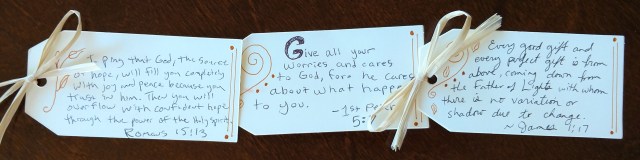 I pray that God, the source
of hope, will fill you completely
with joy and peace because you
trust in him. Then you will
overflow with confident hope
through the power of the Holy Spirit.
Romans 15:13
Give all your
worries and cares
to God, for he cares
about what happens
to you.
~1st Peter
5:7
Every good gift and
every perfect gift is from
above, coming down from
the Father of Lights with whom
there is no variation or
shadow due to change.
~ James 1:17